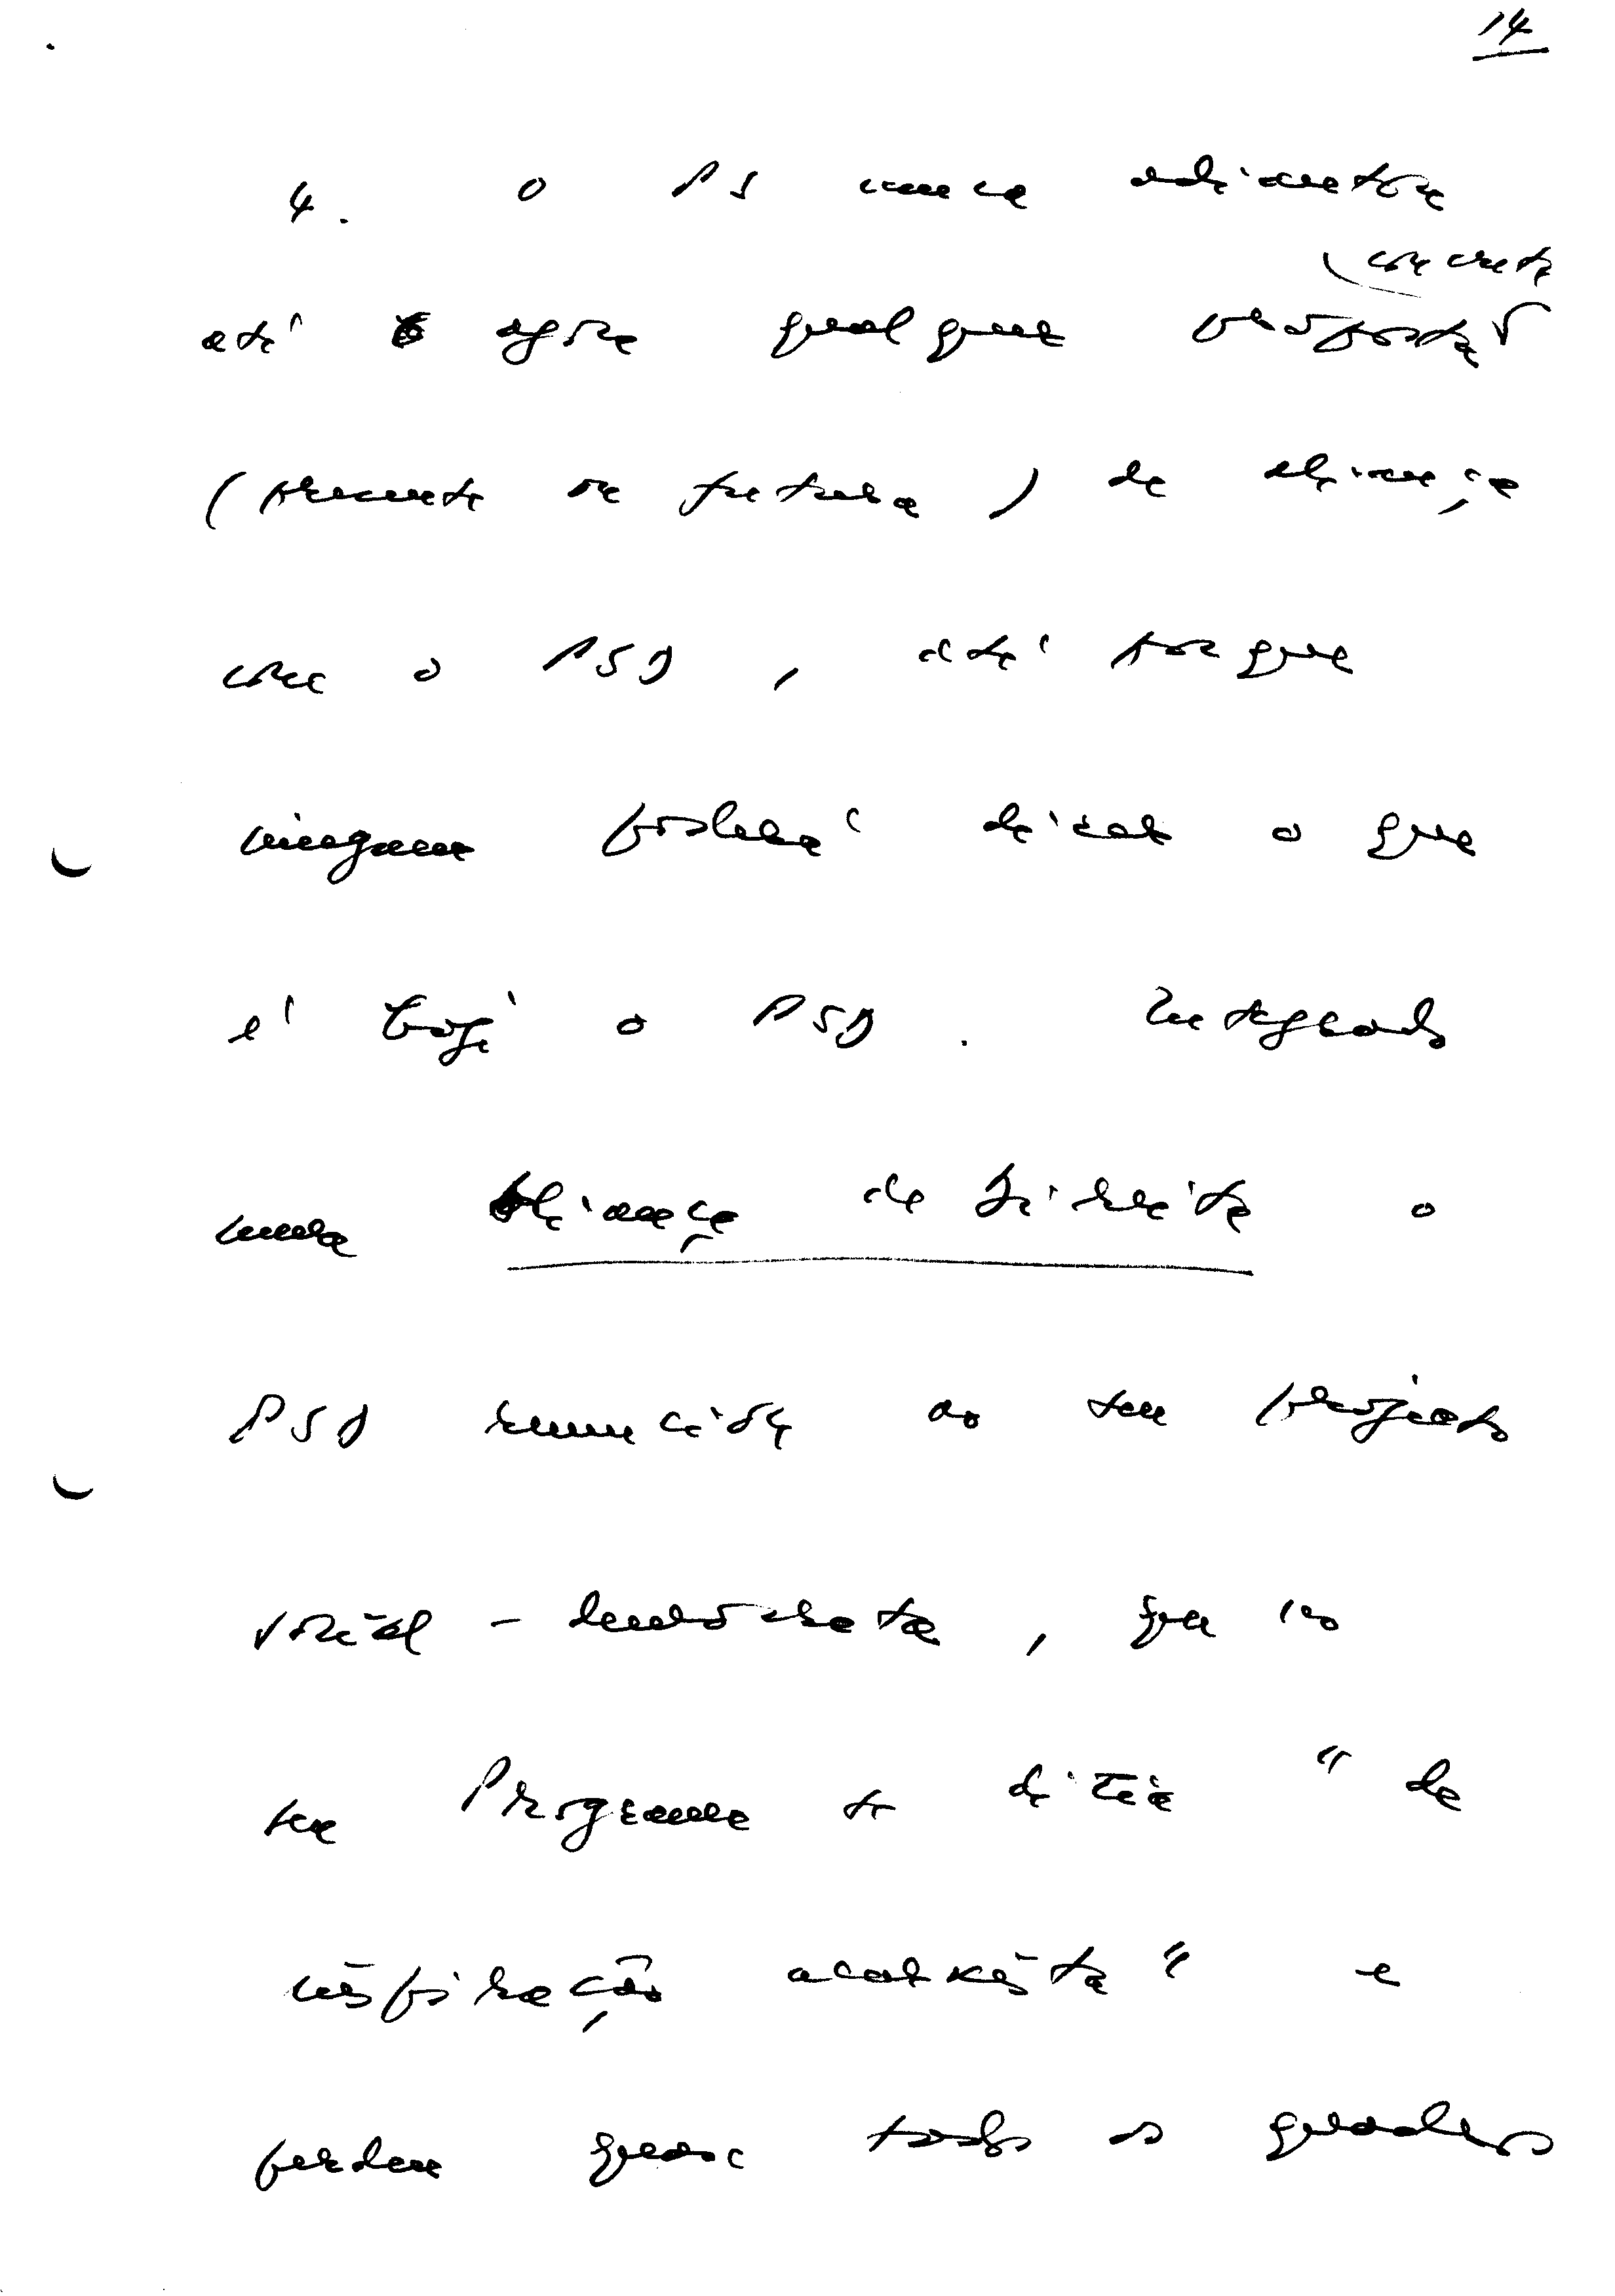 14
4. O PS nunca adiantou
concreta
até agora qualquer proposta
(presente ou futura) de aliança
com o PSD, até porque
ninguem poderá dizer o que
é hoje o PSD. Integrado
numa aliança de direita o
PSD renunciou ao seu projecto
social-democrata, que no
seu Programa se dizia "de
inspiração marxista" e
perdeu quase todos os quadros